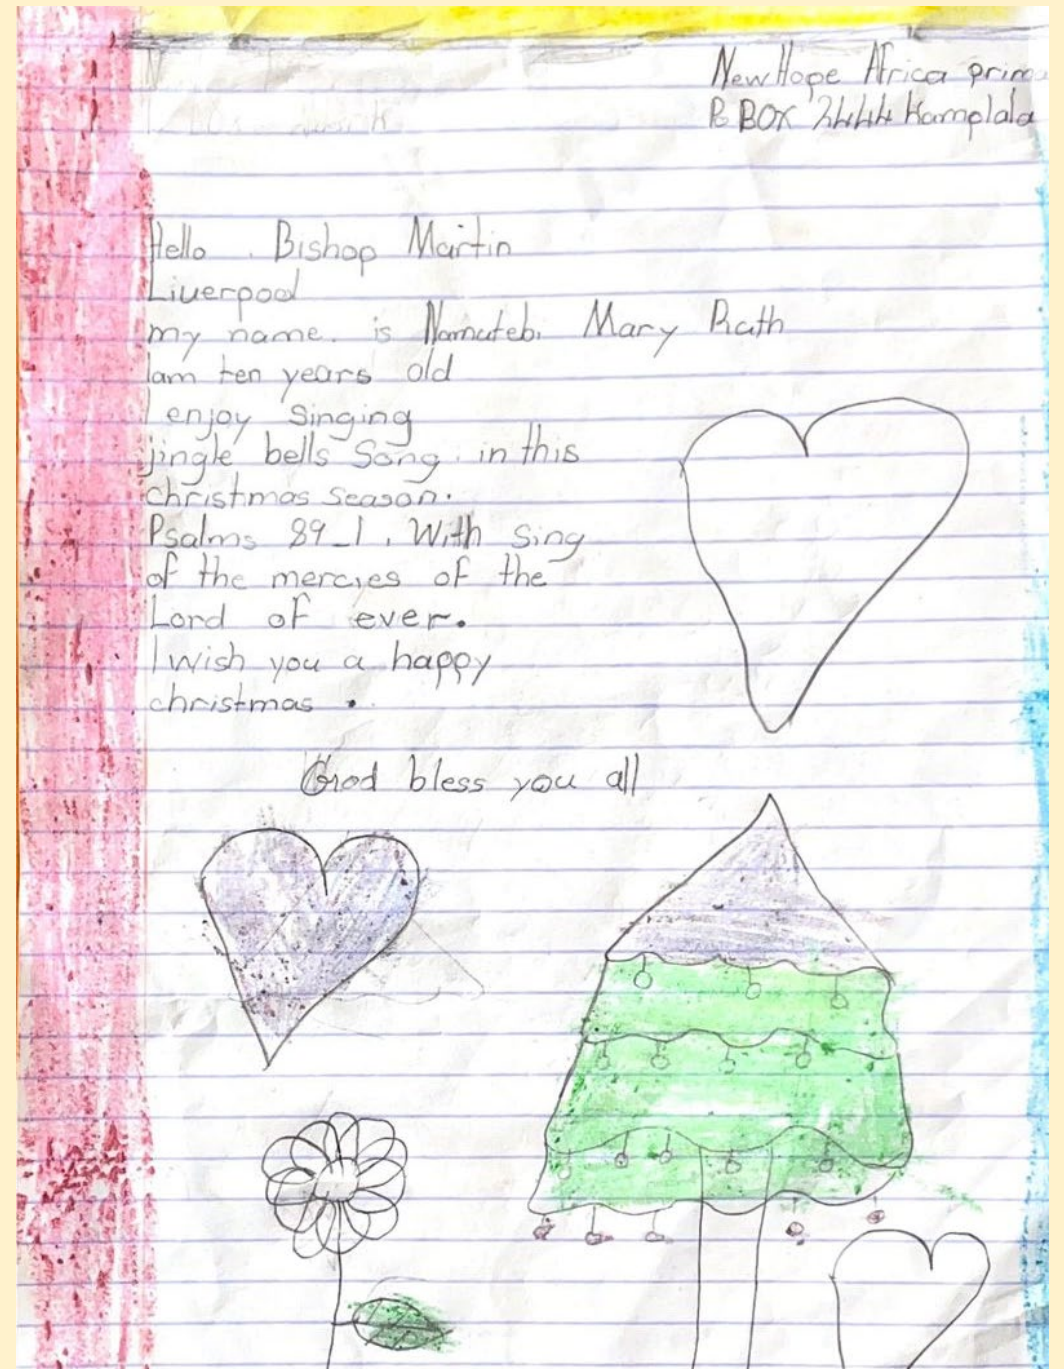 New Hope Africa prim
P. BOX 2444 Kamplala
Hello . Bishop Martin
Liverpool
my name. is Namutebi Mary Ruth
Iam ten years old
I enjoy Singing
jingle bells Song. in this
christmas season.
Psalms 89_1. With Sing
of the mercies of the
Lord of ever.
I wish you a happy
christmas .
God bless you all